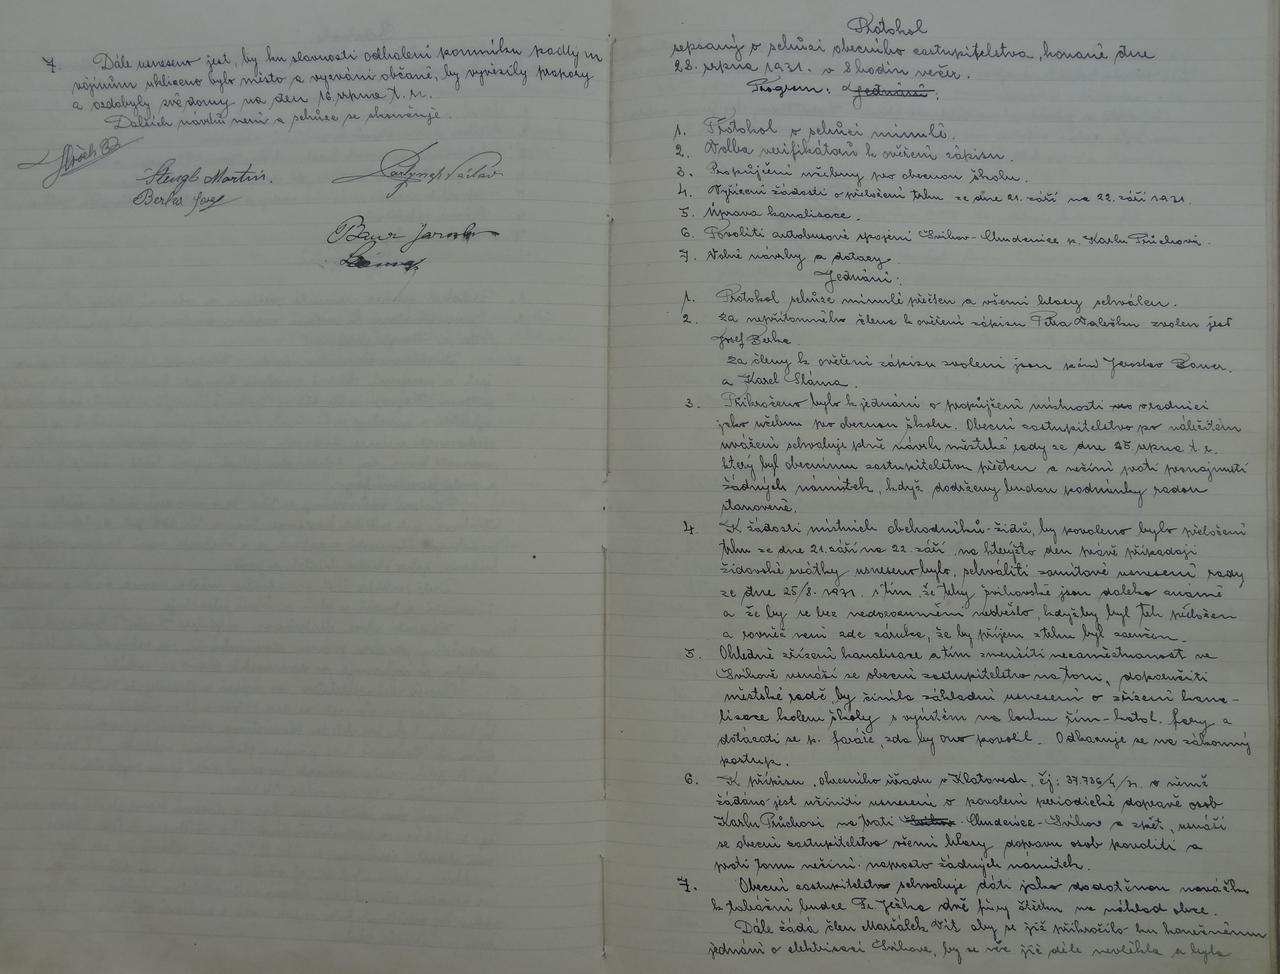 7. Dále usneseno jest, by ku slavnosti odhalení pomníku padlým
vojínům uklizeno bylo místo a vyzváni občané, by vyvěsily prapory
a ozdobily své domy na den 16. srpna t. r.
Dalších návrhů není a schůze se skončuje.
Stengl Martin.
Berka Josef
Martínek Václav
Bauer Jaroslav
Protokol
sepsaný o schůzi obecního zastupitelstva, konané dne
28. srpna 1931. v 8 hodin večer.
Program: Jednání:
1. Protokol o schůzi minulé.
2. Volba verifikátorů k ověření zápisu.
3. Propůjčení učebny pro obecnou školu.
4. Vyřízení žádosti o přeložení trhu ze dne 21. září na 22. září 1931.
5. Úprava kanalisace.
6. Povoliti autobusové spojení Švihov-Chudenice p. Karlu Průchovi.
7. Volné návrhy a dotazy.
Jednání:
1. Protokol schůze minulé přečten a všemi hlasy schválen.
2. Za nepřítomného člena k ověření zápisu Petra Valešku zvolen jest
Josef Berka.
Za členy k ověření zápisu zvoleni jsou páni Jaroslav Bauer.
a Karel Sláma.
3. Přikročeno bylo k jednání o propůjčení místnosti na radnici
jako učebnu pro obecnou školu. Obecní zastupitelstvo po náležitém
uvážení schvaluje plně návrh městské rady ze dne 25 srpna t. r.
který byl obecnímu zastupitelstvu přečten a nečiní proti pronajmutí
žádných námitek, když dodrženy budou podmínky radou
stanovené.
4. K žádosti místních obchodníků-židů, by povoleno bylo přeložení
trhu ze dne 21. září na 22. září, na kterýžto den právě připadají
židovské svátky usneseno bylo, schváliti zamítavé usnesení rady
ze dne 25/8. 1931. s tím, že trhy švihovské jsou daleko známé
a že by se bez nedorozumění neobešlo, kdyžby byl trh přeložen
a rovněž není zde záruka, že by příjem z trhu byl zaručen.
5. Ohledně zřízení kanalisace a tím zmenšiti nezaměstnanost ve
Švihově usnáší se obecní zastupitelstvo na tom, doporučiti
městské radě, by činila základní usnesení o zřízení kana-
lisace kolem školy s vyústěm na louku řím-katol. fary a
dotázati se p. faráře, zda by ono povolil. Odkazuje se na zákonný
postup.
6. K přípisu okresního úřadu v Klatovech, čj: 37.736/4/31. v němž
žádáno jest učiniti usnesení o povolení periodické dopravě osob
Karlu Průchovi na trati Švihov Chudenice-Švihov a zpět, usnáší
se obecní zastupitelstvo všemi hlasy dopravu osob povoliti a
proti tomu nečiní naprosto žádných námitek.
7. Obecní zastupitelstvo schvaluje dáti jako dodatečnou
k tabáční budce Fr. Ježka dvě fůry štěrku na náklad obce.
Dále žádá člen Maršálek Vít aby se již přikročilo ku konečnému
jednání o elektrisaci Švihova, by se věc již déle nevlékla a byla